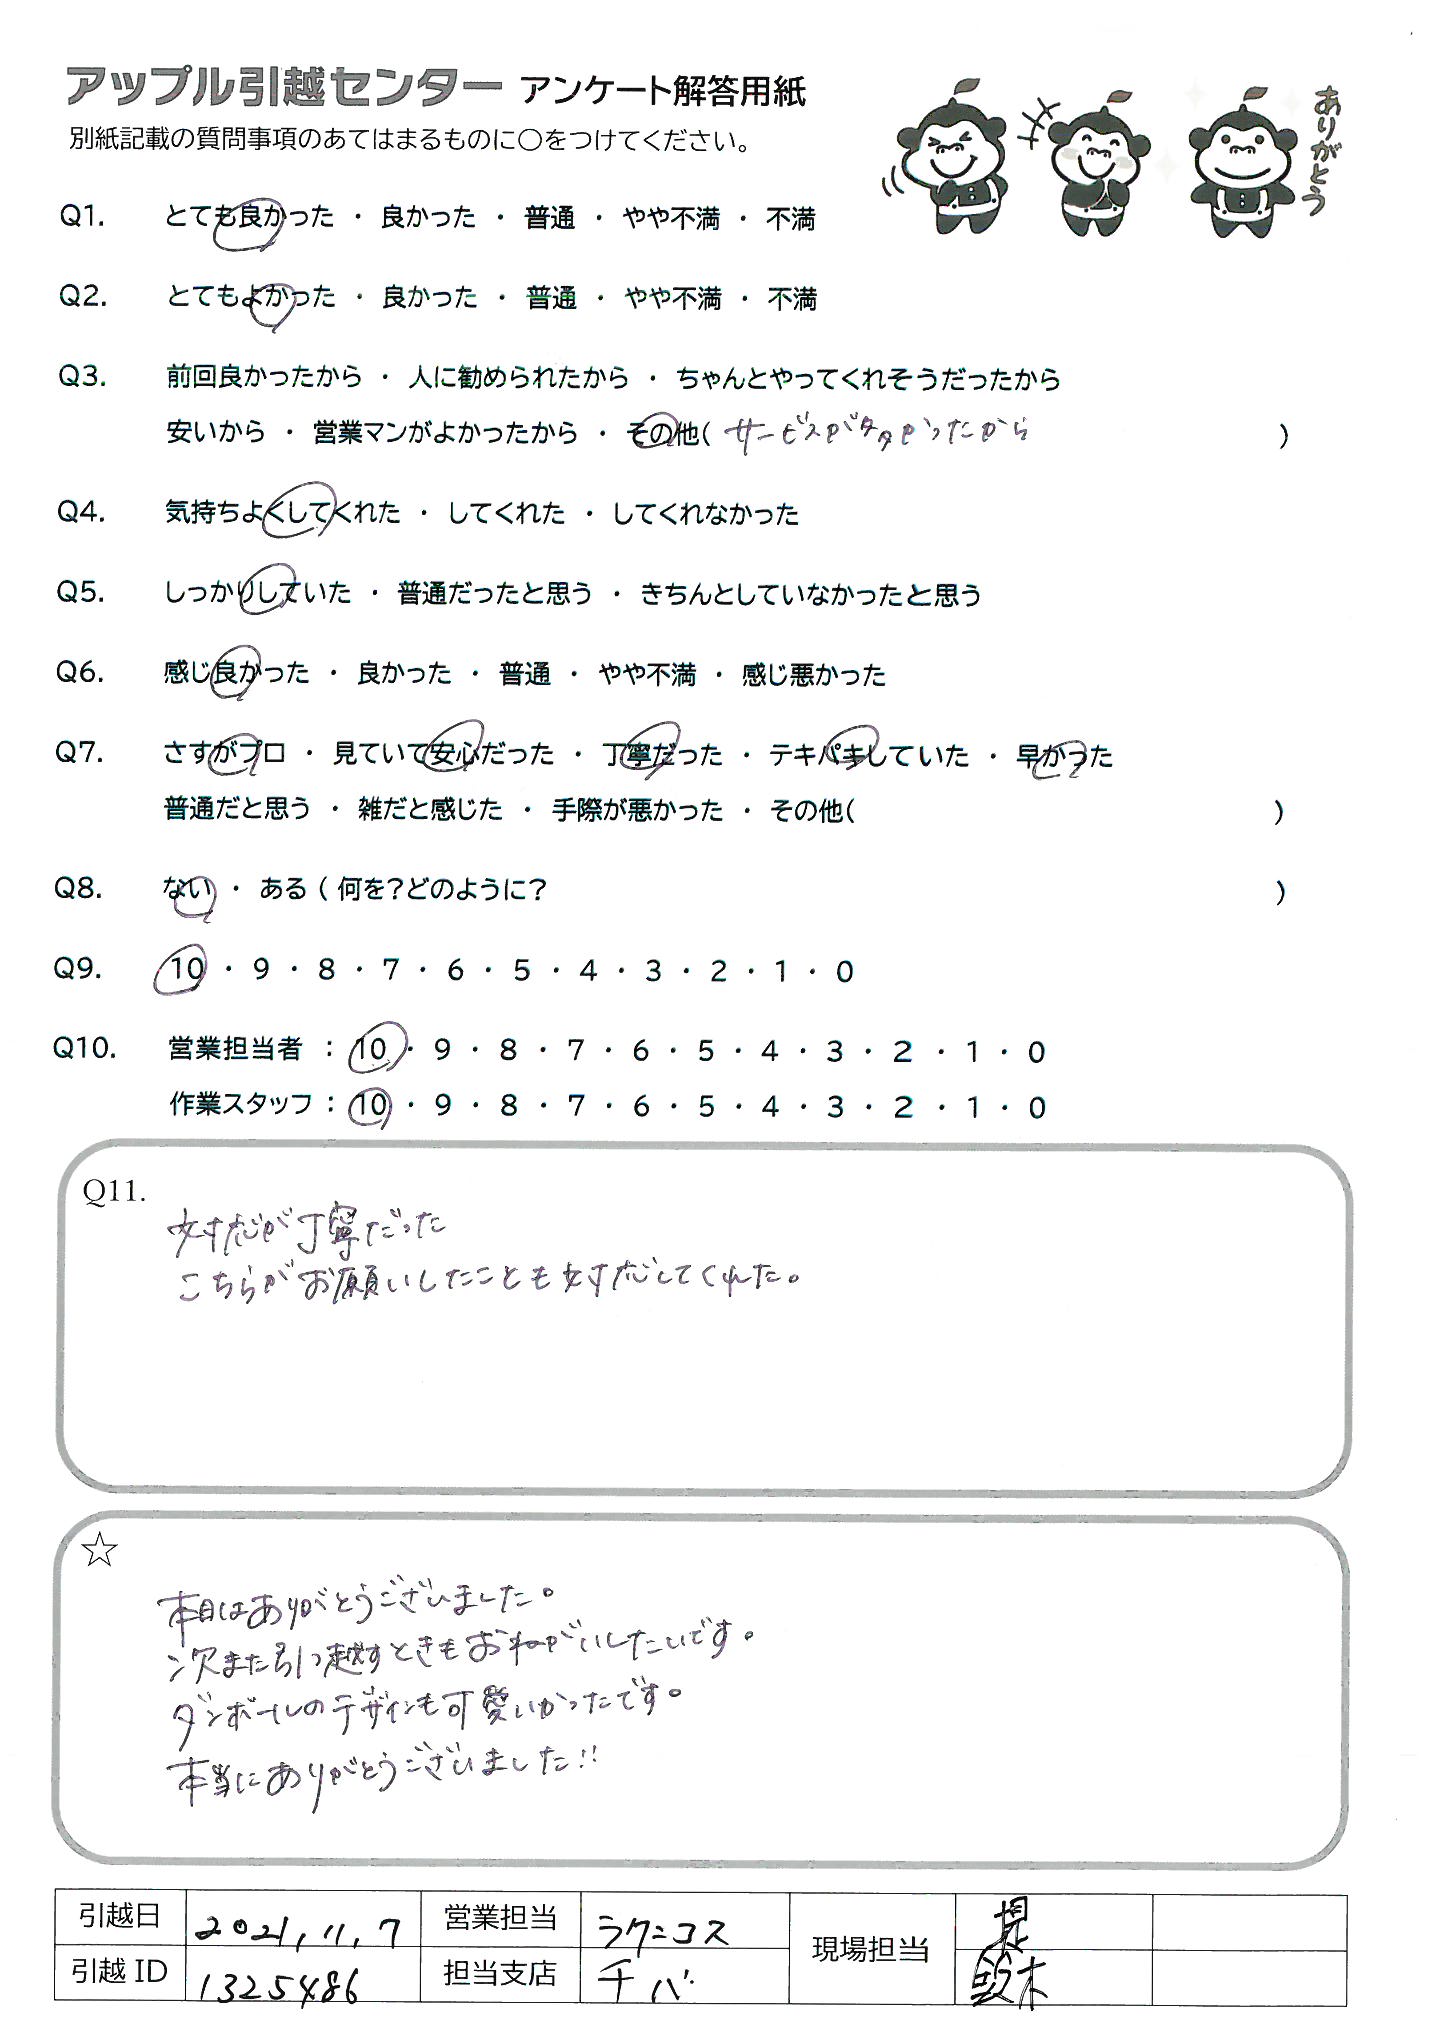 アップル引越センター アンケート解答用紙
別紙記載の質問事項のあてはまるものに○をつけてください。
ありがとう
Q1. とても良かった ・ 良かった ・ 普通 ・ やや不満 ・ 不満
Q2. とてもよかった ・ 良かった ・ 普通 ・ やや不満 ・ 不満
Q3. 前回良かったから ・ 人に勧められたから ・ ちゃんとやってくれそうだったから
安いから ・ 営業マンがよかったから ・ その他( サービスが多かったから )
Q4. 気持ちよくしてくれた ・ してくれた ・ してくれなかった
Q5. しっかりしていた ・ 普通だったと思う ・ きちんとしていなかったと思う
Q6. 感じ良かった ・ 良かった ・ 普通 ・ やや不満 ・ 感じ悪かった
Q7. さすがプロ ・ 見ていて安心だった ・ 丁寧だった ・ テキパキしていた ・ 早かった
普通だと思う ・ 雑だと感じた ・ 手際が悪かった ・ その他( )
Q8. ない ・ ある ( 何を?どのように? )
Q9. 10 ・ 9 ・ 8 ・ 7 ・ 6 ・ 5 ・ 4 ・ 3 ・ 2 ・ 1 ・ 0
Q10. 営業担当者 : 10 ・ 9 ・ 8 ・ 7 ・ 6 ・ 5 ・ 4 ・ 3 ・ 2 ・ 1 ・ 0
作業スタッフ : 10 ・ 9 ・ 8 ・ 7 ・ 6 ・ 5 ・ 4 ・ 3 ・ 2 ・ 1 ・ 0
Q11.
対応が丁寧だった
こちらがお願いしたことも対応してくれた。
☆
本日はありがとうございました。
次また引っ越すときもおねがいしたいです。
ダンボールのデザインも可愛いかったです。
本当にありがとうございました!!
引越日 2021,11,7 営業担当 ラクニコス 現場担当
引越 ID 1325486 担当支店 チバ